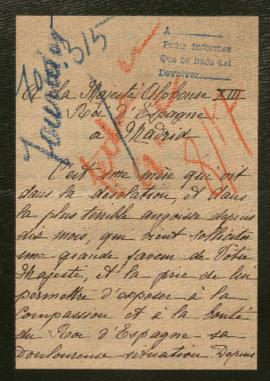 A
Pedir informes
Que se hace así
Devolver
315
A Sa Majesté Alphonse XIII
Roi d'Espagne
à Madrid
C'est une mère qui vit
dans la désolation, et dans
la plus terrible angoisse depuis
dix mois, qui vient solliciter
une grande faveur de Votre
Majesté, et la prie de lui
permettre d'exposer à la
compassion et à la bonté
du Roi d'Espagne sa
douloureuse situation. Depuis